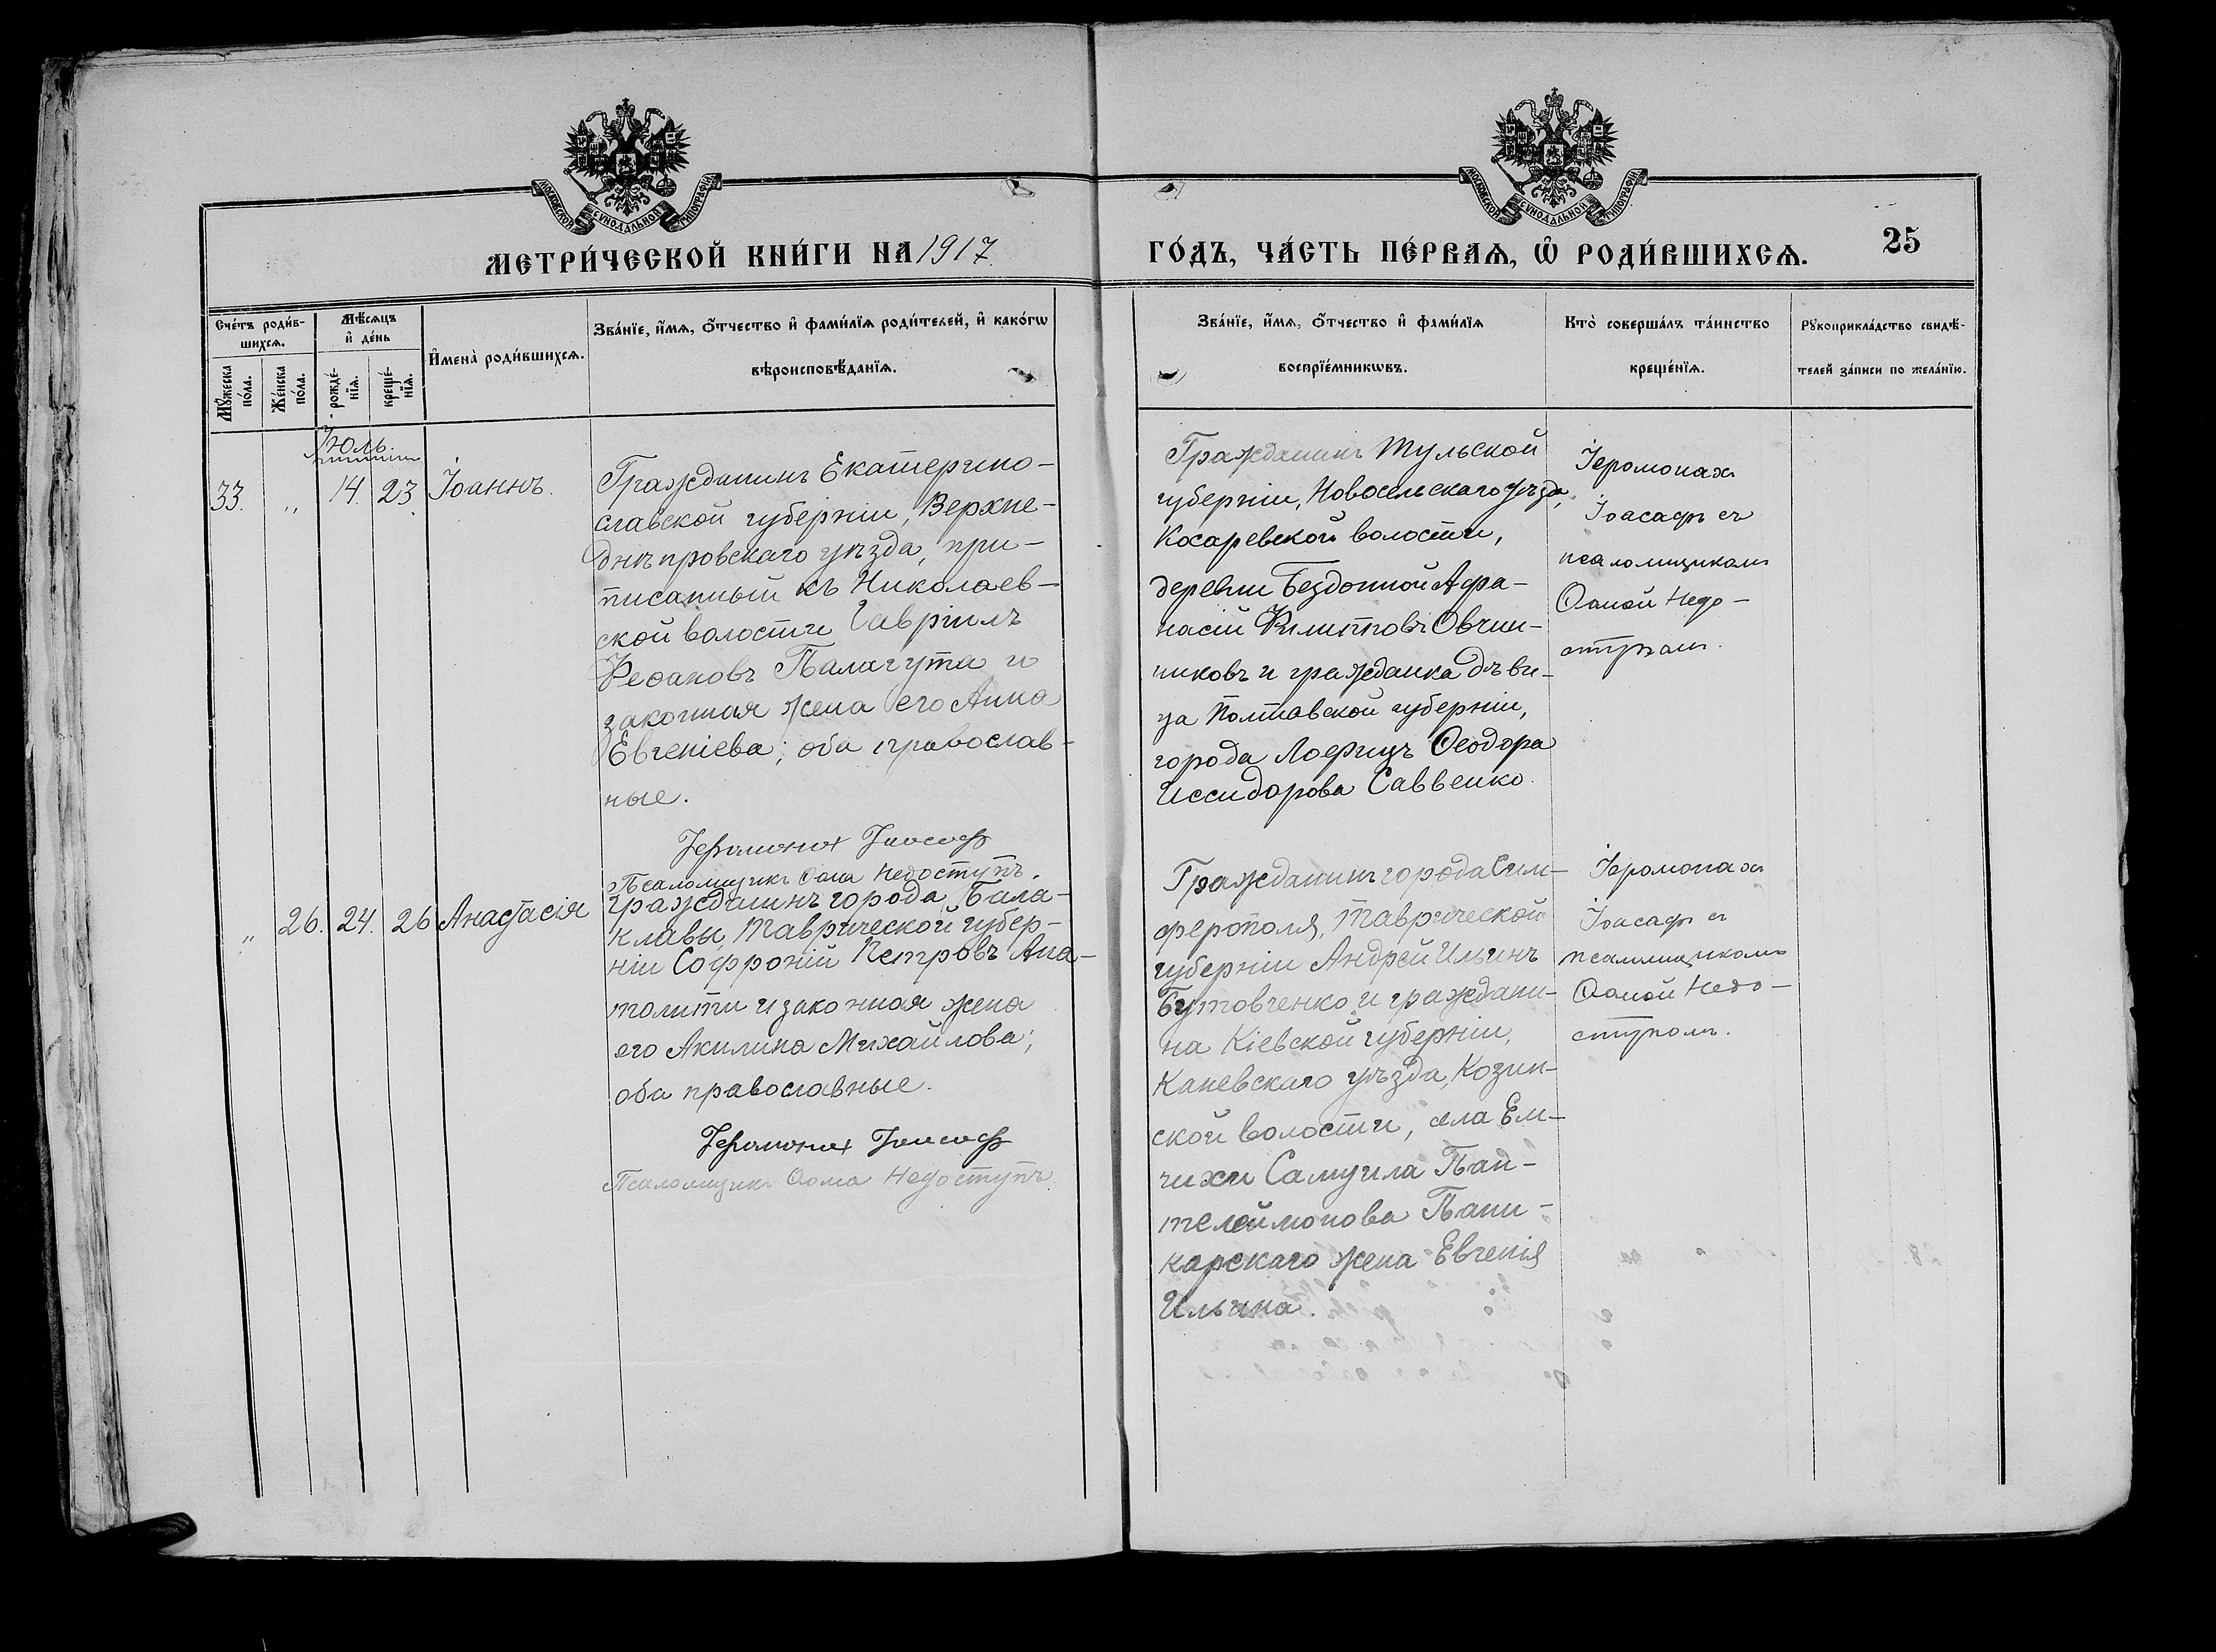 МОСКОВСКОЙ СѴНОДАЛЬНОЙ ТИПОГРАФІИ
МОСКОВСКОЙ СѴНОДАЛЬНОЙ ТИПОГРАФІИ
МЕТРИ́ЧЕСКОЙ КНИ́ГИ НА 1917.
ГО́ДЪ, ЧА́СТЬ ПЕ́РВАѦ, Ѽ РОДИ́ВШИХСѦ.
25
Сче́тъ роди́в-
шихсѧ.
Мѣ́сѧцъ
и҆ де́нь
Мꙋ́жеска
по́ла.
Же́нска
по́ла.
рожде́-
нїѧ.
креще́-
нїѧ.
И҆мена̀ роди́вшихсѧ.
Зва́нїе, и҆́мѧ, ѻ҆́тчество и҆ фами́лїѧ роди́телей, и҆ како́гѡ
вѣроисповѣ́данїѧ.
Зва́нїе, и҆́мѧ, ѻ҆́тчество и҆ фами́лїѧ
воспрїе́мникѡвъ.
Кто̀ соверша́лъ та́инство
креще́нїѧ.
Рꙋкоприкла́дство свидѣ́-
телей за́писи по жела́нїю.
Іюль.
33. „ 14. 23. Іоаннъ.
Гражданинъ Екатерино-
славской губерніи, Верхне-
днѣпровскаго уѣзда, при-
писанный къ Николаев-
ской волости Гавріилъ
Феѳановъ Палагута и
законная жена его Анна
Евгеніева; оба православ-
ные.
Іеромонах Іоасаф
Псаломщикъ Ѳома Недоступъ.
Гражданинъ Тульской
губерніи, Новосельскаго уѣзда,
Косаревской волости,
деревни Бездонной Афа-
насій Филипповъ Овчин-
никовъ и гражданка дѣви-
ца Полтавской губерніи,
города Лохвицъ Ѳеодора
Иссидорова Саввенко.
Іеромонах
Іоасафъ съ
псаломщикомъ
Ѳомой Недо-
ступом.
„ 26. 24. 26 Анастасія
Гражданинъ города Бала-
клавы, Таврической губер-
ніи Софроній Петровъ Ана-
толити и законная жена
его Акилина Михайлова;
оба православные.
Іеромонах Іоасаф
Псаломщикъ Ѳома Недоступъ
Гражданинъ города Сим-
ферополя, Таврической
губерніи Андрей Ильинъ
Бутовченко и граждани-
на Кіевской губерніи,
Каневскаго уѣзда, Козин-
ской волости, села Ем-
чихи Самуила Пан-
телеймонова Пани-
карскаго жена Евгенія
Ильина.
Іеромонах
Іоасафъ съ
псаломщикомъ
Ѳомой Недо-
ступомъ.